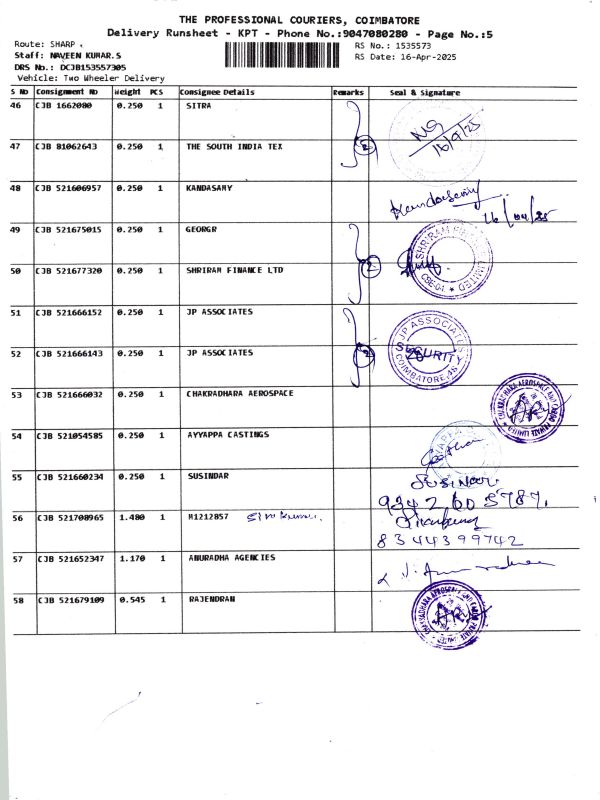 THE PROFESSIONAL COURIERS, COIMBATORE
Delivery Runsheet - KPT - Phone No.:9047080280 - Page No.:5
Route: SHARP
RS No.: 1535573
Staff: NAVEEN KUMAR.S
RS Date: 16-Apr-2025
DRS No.: DCJB153557305
Vehicle: Two Wheeler Delivery
S No Consignment No Weight PCS Consignee Details Remarks Seal & Signature
46 CJB 1662080 0.250 1 SITRA
47 CJB 81062643 0.250 1 THE SOUTH INDIA TEX 2
48 CJB 521606957 0.250 1 KANDASAMY Kandasamy
16/04/25
49 CJB 521675015 0.250 1 GEORGR
50 CJB 521677320 0.250 1 SHRIRAM FINANCE LTD 2 SHRIRAM LIMITED CBE-04
51 CJB 521666152 0.250 1 JP ASSOCIATES
52 CJB 521666143 0.250 1 JP ASSOCIATES 2 JP ASSOCIATES SECURITY COIMBATORE
53 CJB 521666032 0.250 1 CHAKRADHARA AEROSPACE CHAKRADHARA AEROSPACE AND CARGO PRIVATE LIMITED
54 CJB 521054585 0.250 1 AYYAPPA CASTINGS
55 CJB 521660234 0.250 1 SUSINDAR
56 CJB 521708965 1.480 1 M1212857
8344399742
57 CJB 521652347 1.170 1 ANURADHA AGENCIES
58 CJB 521679109 0.545 1 RAJENDRAN CHAKRADHARA AEROSPACE AND CARGO PRIVATE LIMITED